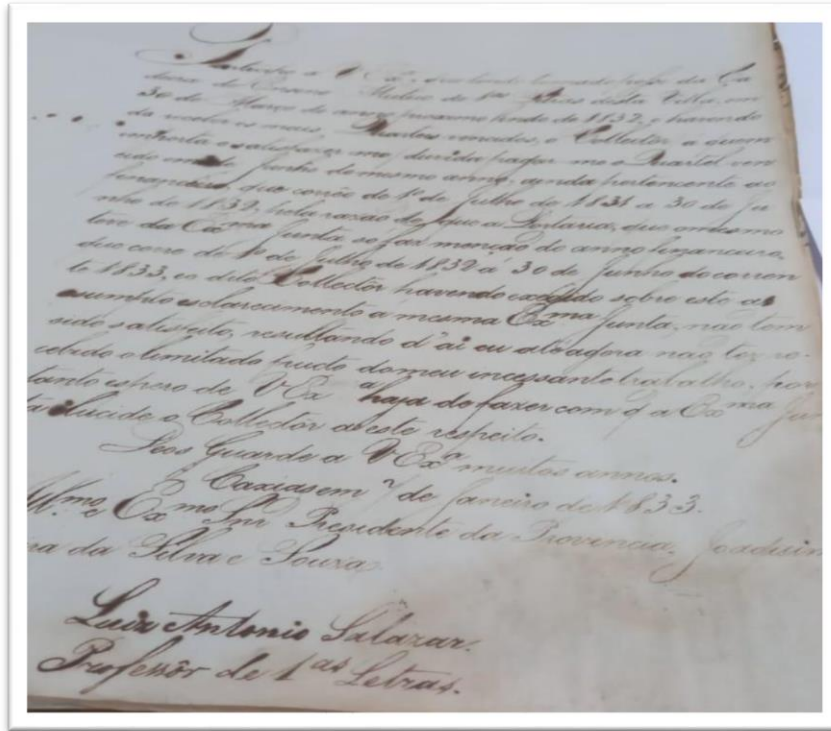 a V Ex.ª, que tendo tomado posse da Ca
deira de Ensino Mutuo de 1as Letras desta Villa, em
30 de Março do anno proximo findo de 1832, e havendo
vencidos, o Collector a quem
satisfazer-me, duvida pagar-me o Quartel ven
cido em de Junho do mesmo anno, ainda pertencente ao
financeiro, que correo de 1º de Julho de 1831 a 30 de Ju
nho de 1832, pela razão de que a Portaria, que o mesmo
teve da Exma Junta, só faz menção do anno financeiro,
que corre de 1º de Julho de 1832 á 30 de Junho do corren
te 1833, e o dito Collector havendo exigido sobre este as
sumpto esclarecimento a mesma Exma Junta, não tem
sido satisfeito, resultando d'ai eu até agora não ter re-
cebido o limitado fructo do meu incessante trabalho, por
tanto espero de V Ex.ª haja de fazer com q a Exma Jun
ta elucide o Collector a este respeito.
Deos Guarde a V Ex.ª muitos annos.
Caxias em 7 de Janeiro de 1833.
Illmo e Exmo Snr Presidente da Provincia, Joaquim
ra da Silva e Souza
Luiz Antonio Salazar.
Professôr de 1as Letras.